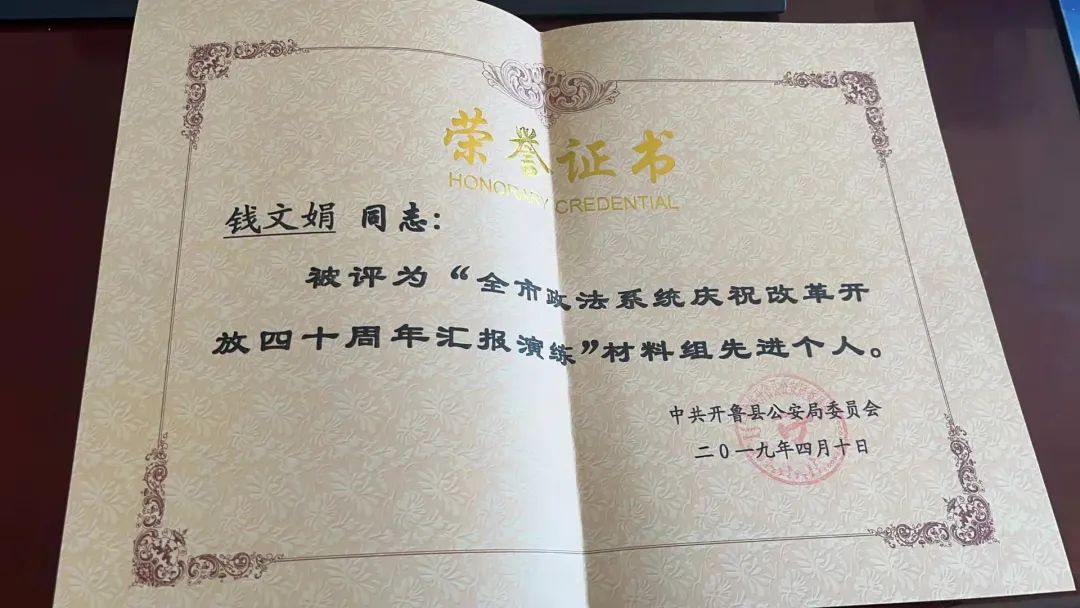 荣誉证书
HONORARY CREDENTIAL
钱文娟 同志:
被评为“全市政法系统庆祝改革开
放四十周年汇报演练”材料组先进个人。
中共开鲁县公安局委员会
二〇一九年四月十日